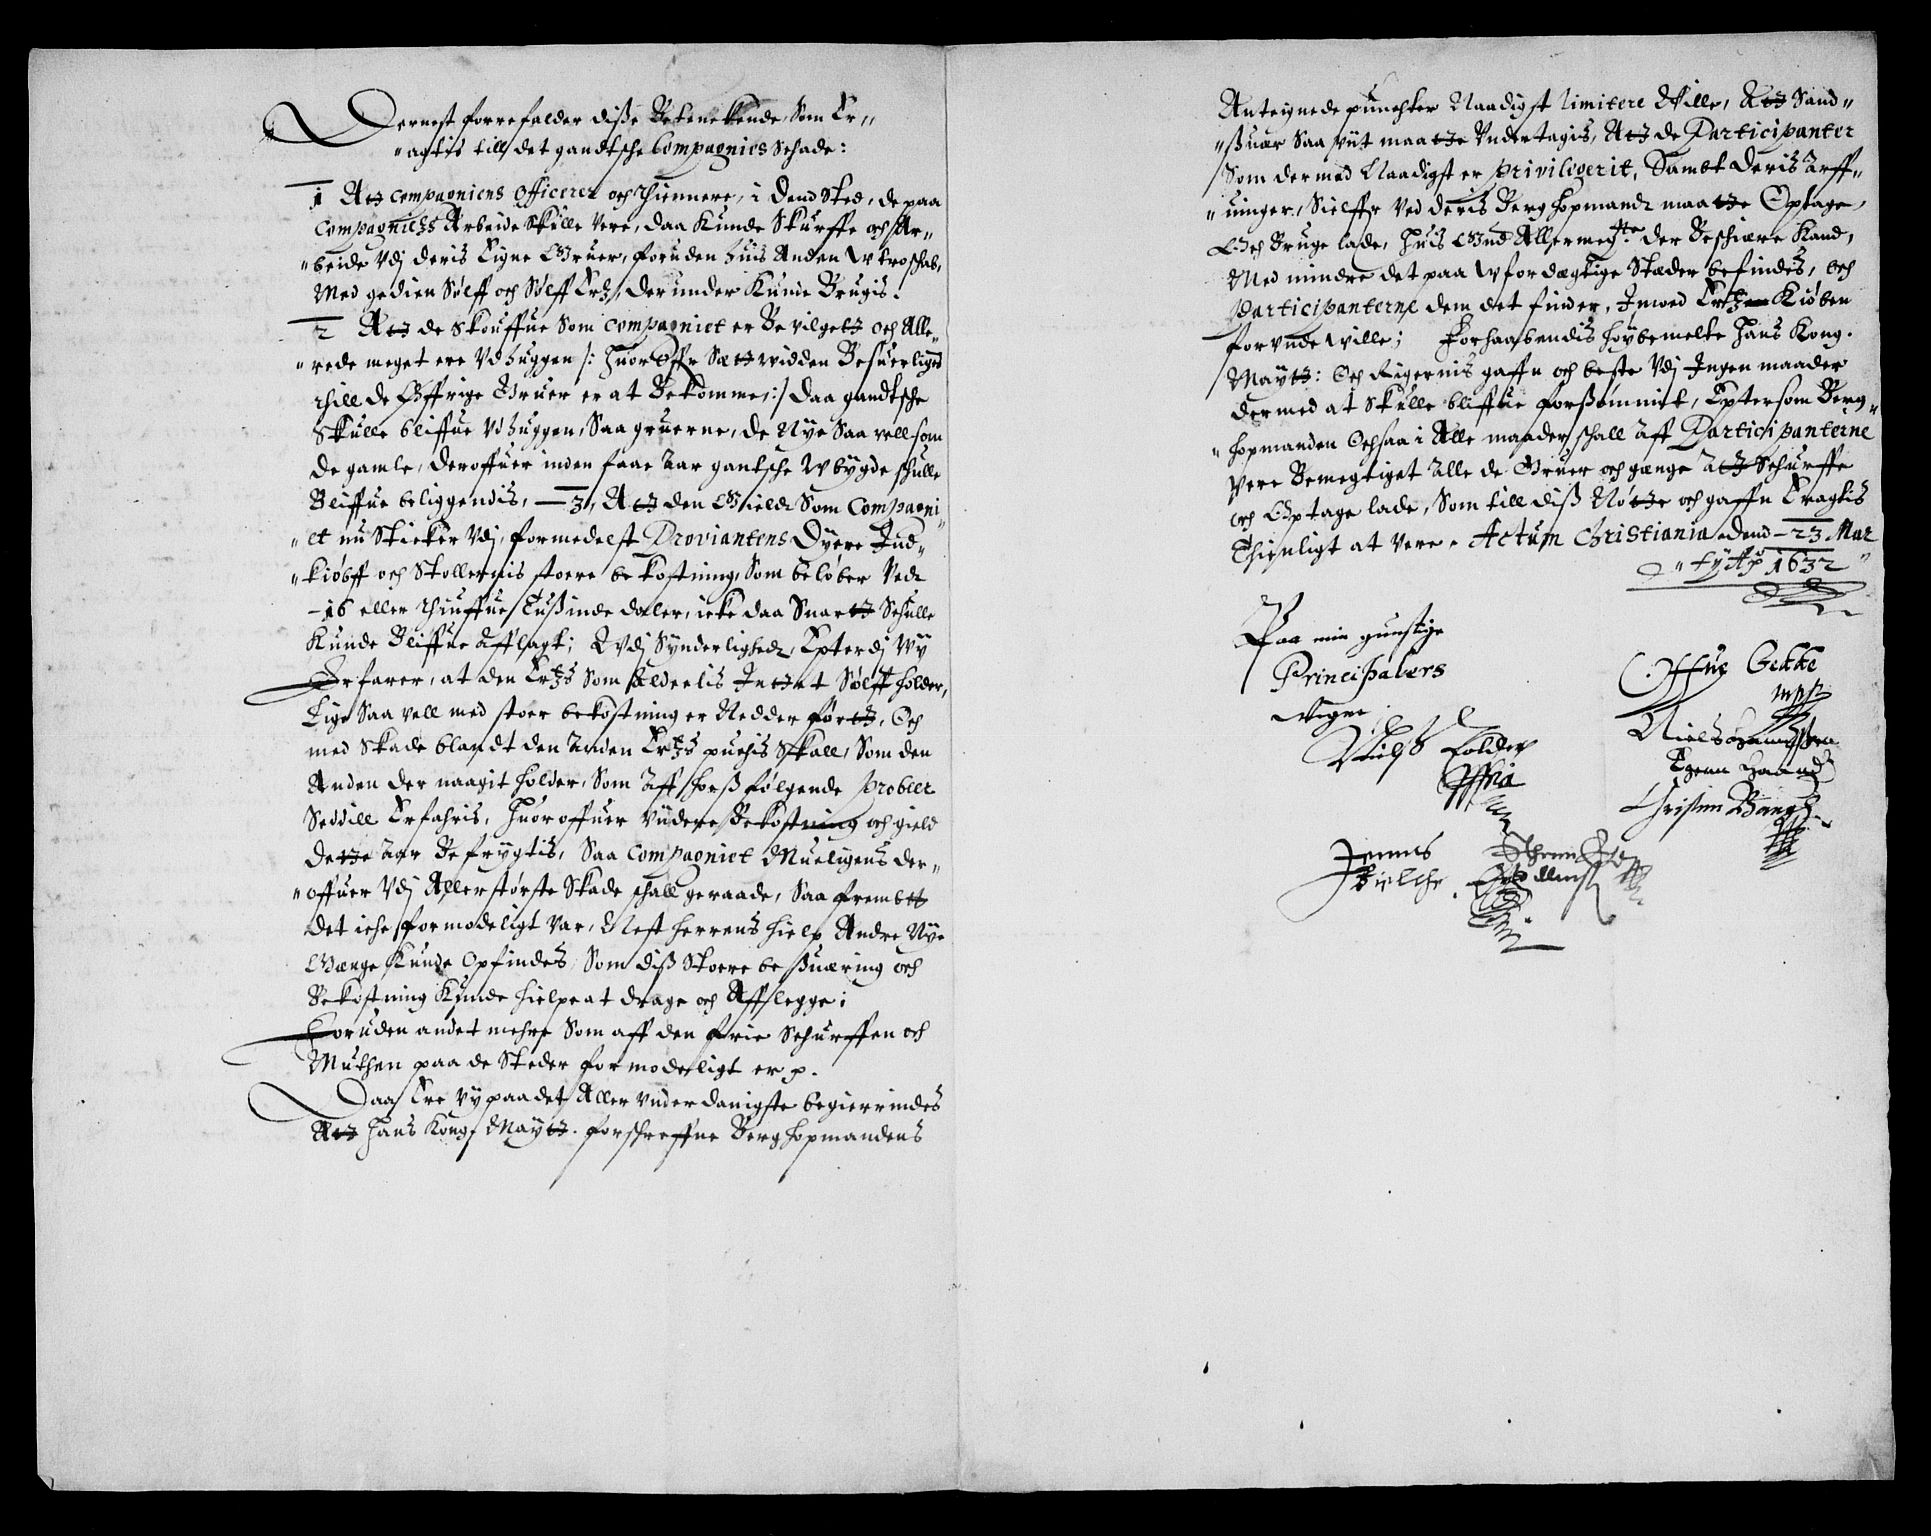 Dernest forrefalder diße Betenckende, Som Er„
„agtis till det gandtsche Compagnies Schade:
1 Att Compagniens Officerer och thiennere, i dend Sted, de paa
Compagnietzs Arbeide Skulle Vere, daa Kunde Skurffe och Ar„
„beide Vdj deris Eigne Gruer, foruden huis Anden Vtroschab,
Med gedien Sølff och Sølff Ertz, derunder Kunde Brugis.
2 Att de Skouffue Som Compagniet er Bevilgett och Alle„
„rede meget ere Vdhuggen /: huor offr Sætt widden Besuerligst
thill de Øffrige Gruer er at Bekomme :/ daa gandtsche
Skulle bliffue Vdhuggen, Saa gruerne, de Nye Saa vell som
de gamle, deroffuer inden faae Aar gantsche Vbygde schulle
Bliffue beliggendis, — 3, Att den Gield Som Compagni„
„et nu Sticker Vdj, formedelst Proviantens Dyere Ind„
„kiøbff och Stollernis stoere bekostning, Som beløber Ved
-16 eller thiuffue Tußinde daler, icke daa Snartt Schulle
Kunde Bliffue Afflagt; Udj Synderlighed, Epterdj Wy
Erfarer, at den Ertzs Som aldeelis Inttet Sølff holder,
Lige Saa vell med stoer bekostning er Nedder førtt, Och
med Skade blandt den Anden Ertzs puchis Skall, Som den
Anden der naagit holder, Som Aff hoß følgende Probeer
Seddill Erfahris, huoroffuer Viidere Bekostning och gield
dette Aar Befrygtis, Saa Compagniet Mueligens der„
„offuer Vdj Allerstørste Skade schall geraade, Saa frembtt
det iche formodeligt var, Nest herrens hielp Andre Nye
Gænge Kunde Opfindes, Som diß Stoere beßuæring och
Bekostning Kunde hielpe at drage och Afflegge;
Foruden andet mehre Som aff den frie Schurffen och
Muthen paa de Steder formodeligt er p.
Daa Ere vy paa det Aller underdanigste begierrindes
Att Hans Kong. Maytt. forschreffne Berghopmandens
Anteignede puncter Naadigst limitere Wille, Att Saad„
„ßuær Saa viit maatte Undertagis, Att de Participanter
Som dermed Naadigst er Priviligerit, Sambt deris Arff„
„uinger, Sielffr Ved deris Berghopmand maatte Optage,
Och Bruge lade, huis Gud Allermegtte. der Beschiære Kand,
Med mindre det paa Wfordægtige Stæder befindes, och
Participanterne dem det finder, Imod Ertz Kiøben
forunde wille; Forhaabendis høybemelte Hans Kong.
Maytt: och Rigernis gaffn och beste Vdj Ingen maader
dermed at Skulle bliffue forßømmit, Eptersom Berg„
„hopmanden Ochsaa i Alle maader schall Aff Participanterne
Vere Bemegtiget Alle de Gruer och gænge Att Schurffe
och Optage lade, Som till diß Nøtte och gaffn Eragtis
Thienligt at vere. Actum Christiania dend – 23 Mar
„tij Ao 1632
Paa min gunstige
Principalers
Wegne
Niels Tolder
Offue Gedde
mpp
Niels Hanßen
Egenn Haand
Christen Bang
Jennes
Bielche